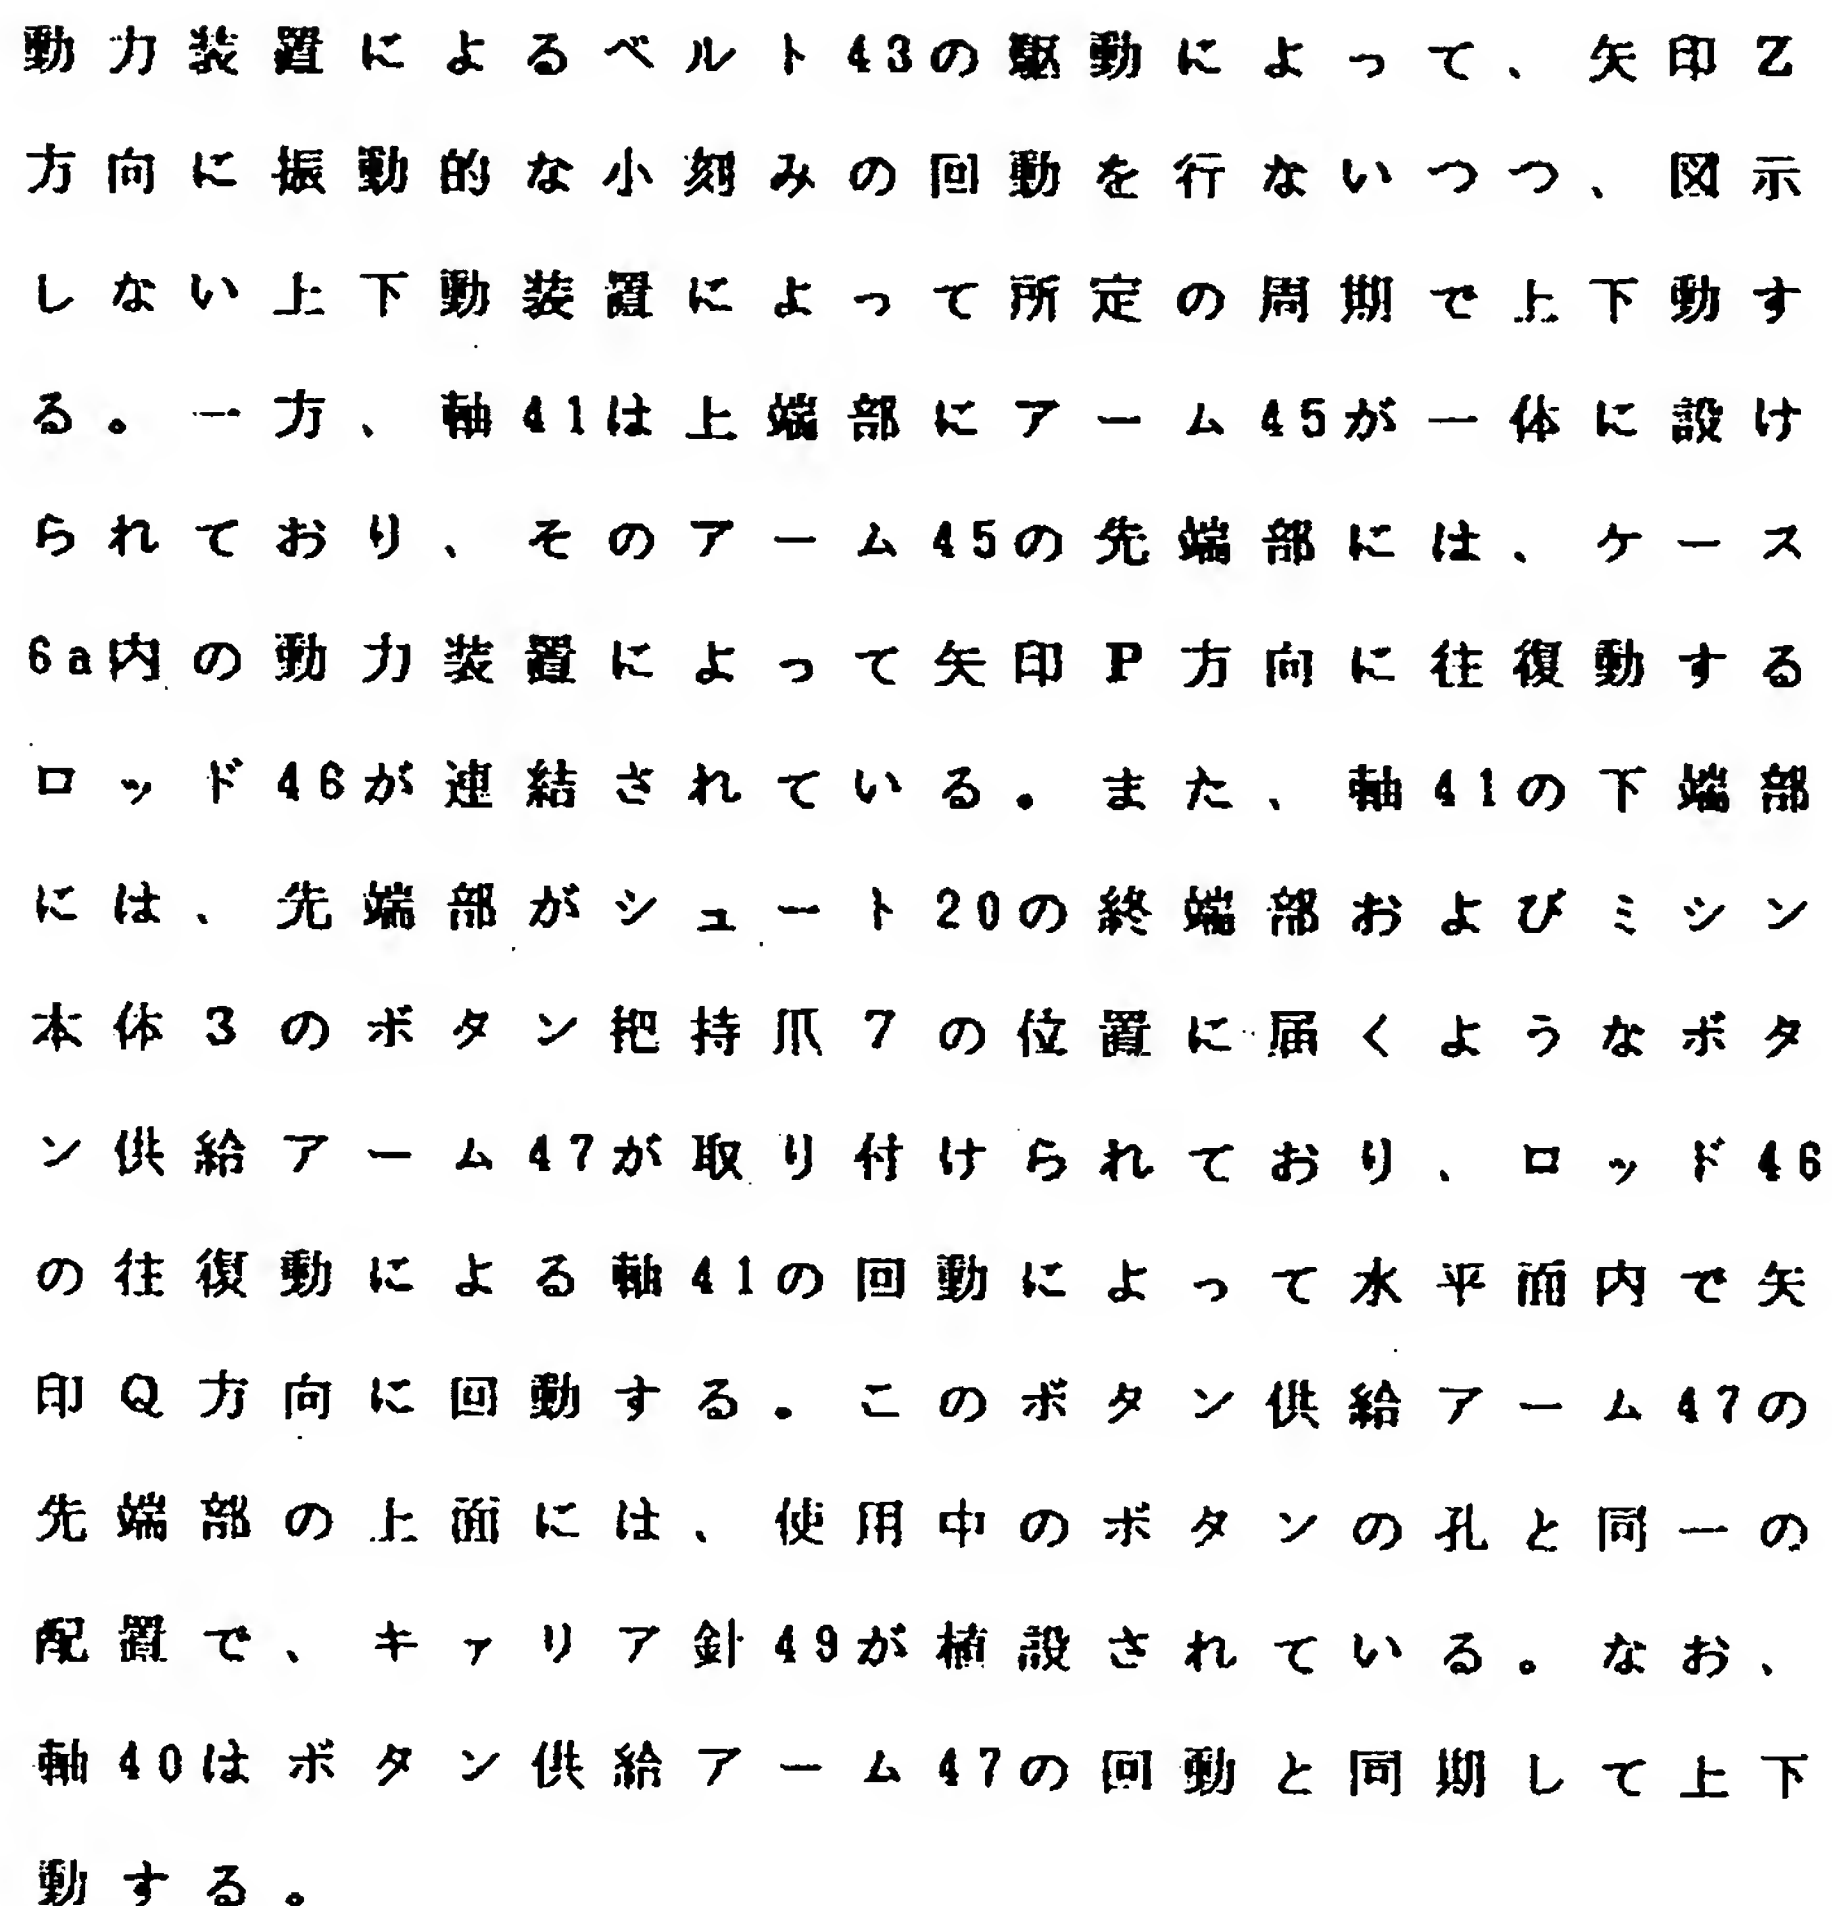 動力装置によるベルト43の駆動によって、矢印Z
方向に振動的な小刻みの回動を行ないつつ、図示
しない上下動装置によって所定の周期で上下動す
る。一方、軸41は上端部にアーム45が一体に設け
られており、そのアーム45の先端部には、ケース
6a内の動力装置によって矢印P方向に往復動する
ロッド46が連結されている。また、軸41の下端部
には、先端部がシュート20の終端部およびミシン
本体3のボタン把持爪7の位置に届くようなボタ
ン供給アーム47が取り付けられており、ロッド46
の往復動による軸41の回動によって水平面内で矢
印Q方向に回動する。このボタン供給アーム47の
先端部の上面には、使用中のボタンの孔と同一の
配置で、キャリア針49が植設されている。なお、
軸40はボタン供給アーム47の回動と同期して上下
動する。